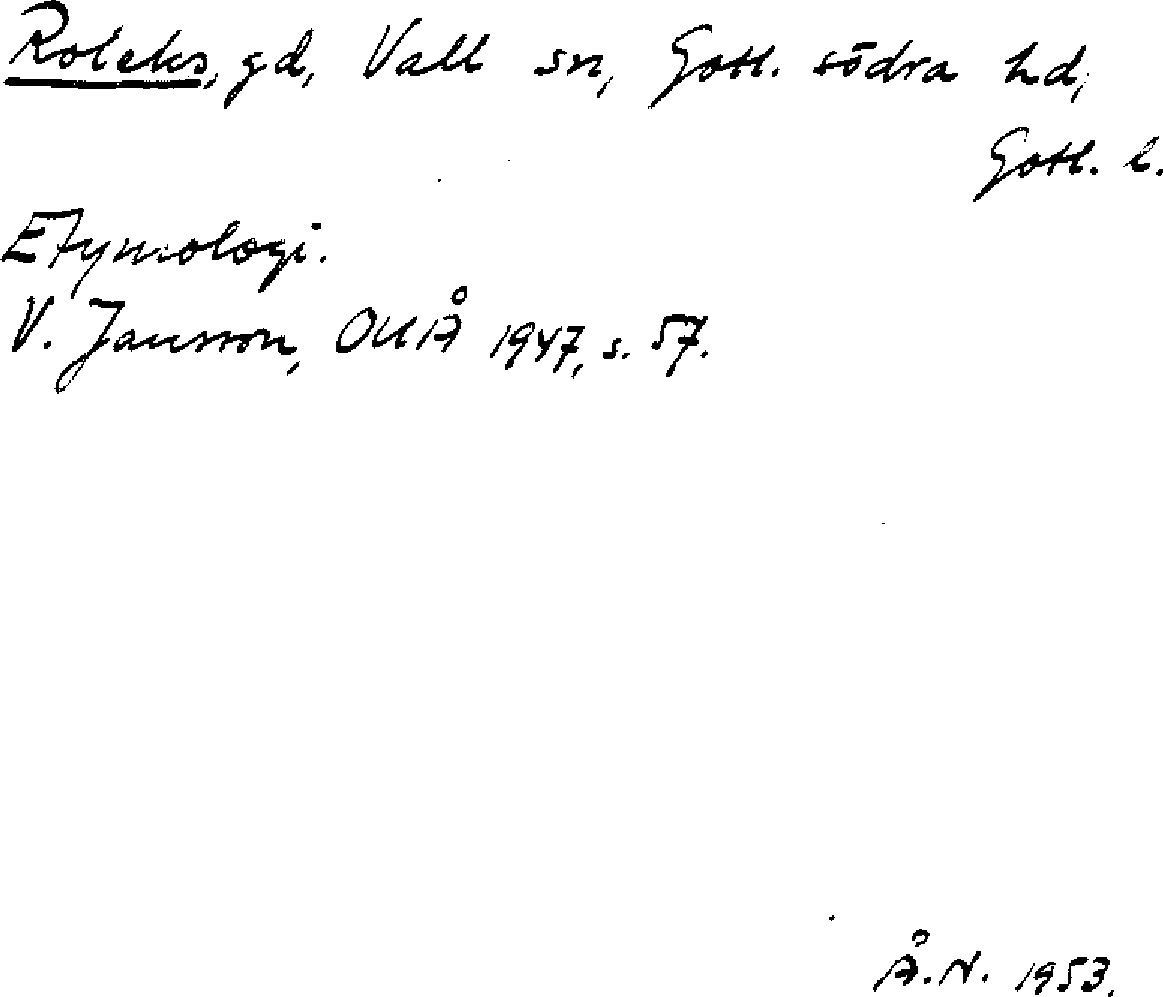 Roleks, gd, Vall sn, Gotl. södra hd,
Gotl. l.
Etymologi.
V. Jansson, OUÅ 1947, s. 57.
Å.N. 1953.